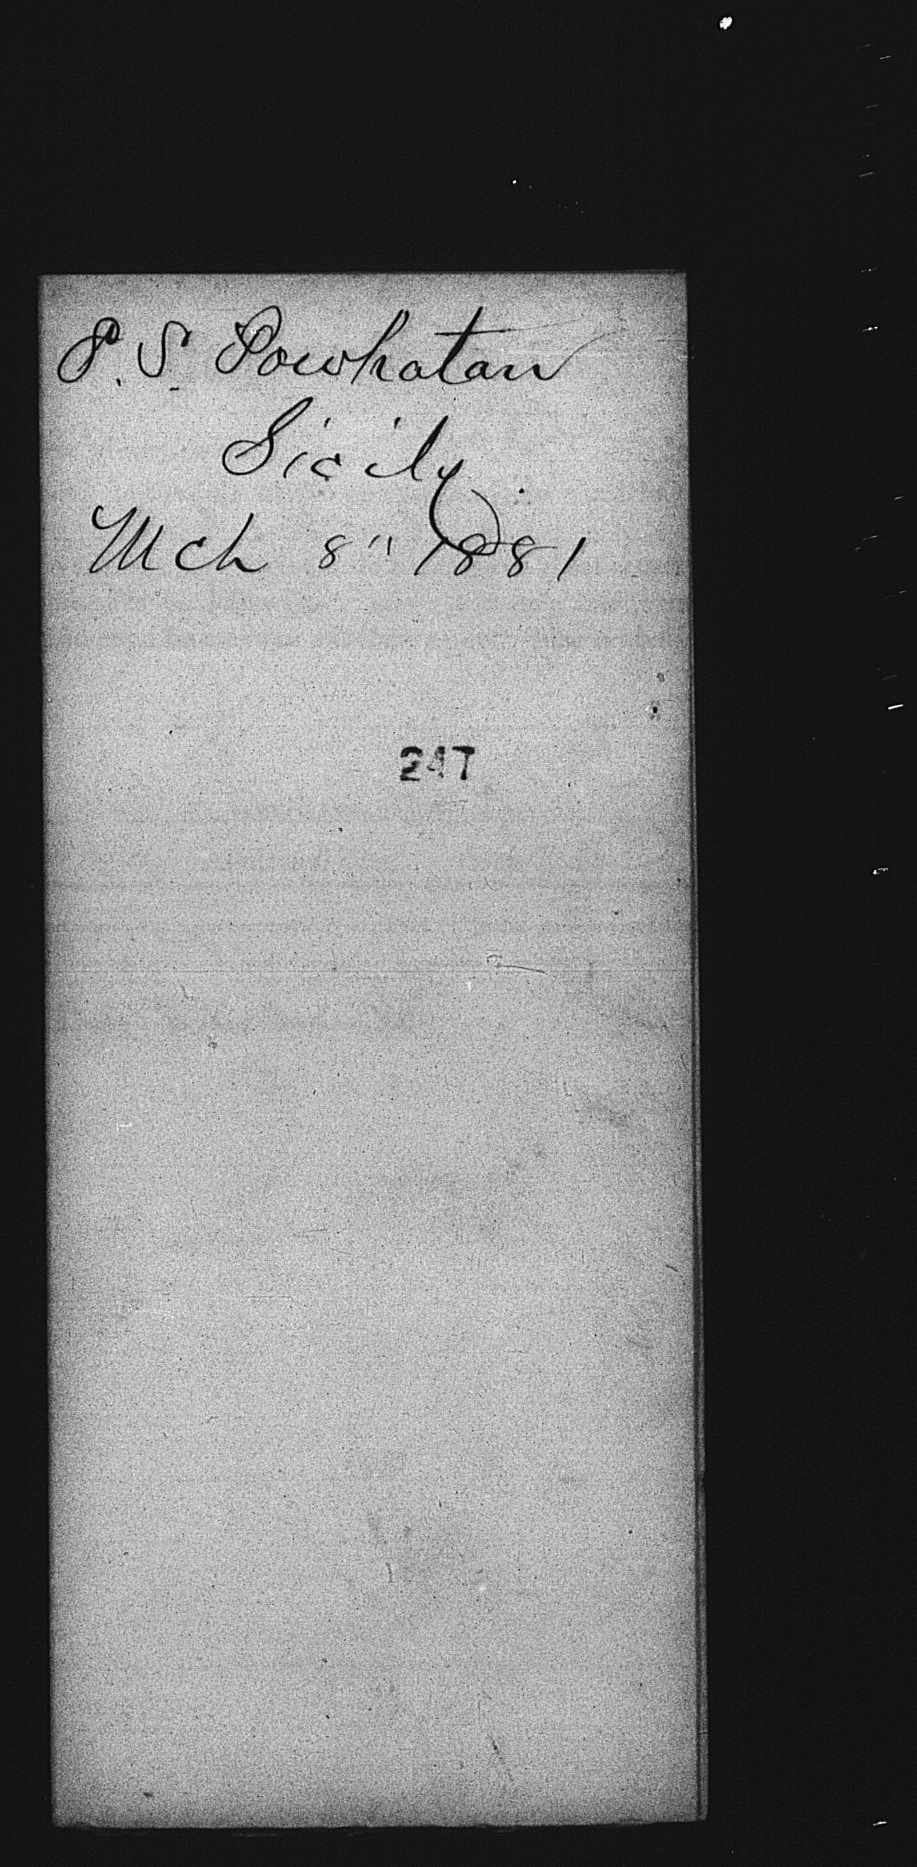 P. S. Powhatan
Sicily
Mch 8" 1881
247